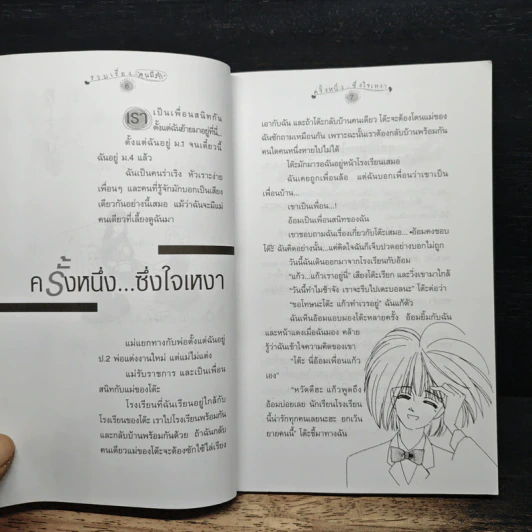 รวมเรื่อง คนมีรัก
6
เรา เป็นเพื่อนสนิทกัน
ตั้งแต่ฉันย้ายมาอยู่ที่นี่...
ตั้งแต่ฉันอยู่ ม.1 จนเดี๋ยวนี้
ฉันอยู่ ม.4 แล้ว
ฉันเป็นคนร่าเริง หัวเราะง่าย
เพื่อนๆ และคนที่รู้จักมักบอกเป็นเสียง
เดียวกันอย่างนี้เสมอ แม้ว่าฉันจะมีแม่
คนเดียวที่เลี้ยงดูฉันมา
ครั้งหนึ่ง...ซึ่งใจเหงา
แม่แยกทางกับพ่อตั้งแต่ฉันอยู่
ป.2 พ่อแต่งงานใหม่ แต่แม่ไม่แต่ง
แม่รับราชการ และเป็นเพื่อน
สนิทกับแม่ของโต๊ะ
โรงเรียนที่ฉันเรียนอยู่ใกล้กับ
โรงเรียนของโต๊ะ เราไปโรงเรียนพร้อมกัน
และกลับบ้านพร้อมกันด้วย ถ้าฉันกลับ
คนเดียวแม่ของโต๊ะจะต้องซักไซ้ไล่เรียง
ครั้งหนึ่ง...ซึ่งใจเหงา
7
เอากับฉัน และถ้าโต๊ะกลับบ้านคนเดียว โต๊ะจะต้องโดนแม่ของ
ฉันซักถามเหมือนกัน เพราะฉะนั้นเราต้องกลับบ้านพร้อมกัน
คนใดคนหนึ่งหายไปไม่ได้
โต๊ะมักมารอฉันอยู่หน้าโรงเรียนเสมอ
ฉันเคยถูกเพื่อนล้อ แต่ฉันบอกเพื่อนว่าเขาเป็น
เพื่อนบ้าน...
เขาเป็นเพื่อน...!
อ้อมเป็นเพื่อนสนิทของฉัน
เขาชอบถามฉันเรื่องเกี่ยวกับโต๊ะเสมอ... อ้อมคงชอบ
โต๊ะ ฉันคิดอย่างนั้น...แต่คิดใจฉันก็เจ็บปวดอย่างบอกไม่ถูก
วันนี้ฉันเดินออกมาจากโรงเรียนกับอ้อม
"แก้ว...แก้วเราอยู่นี่" เสียงโต๊ะเรียก และวิ่งเขามาใกล้
"วันนี้ทำไมช้าจัง เราจะรีบไปเตะบอลนะ" โต๊ะต่อว่า
"ขอโทษนะโต๊ะ แก้วทำเวรอยู่" ฉันแก้ตัว
ฉันเห็นอ้อมแอบมองโต๊ะหลายครั้ง อ้อมยิ้มกับฉัน
และหน้าแดงเมื่อฉันมอง คล้าย
รู้ว่าฉันเข้าใจความคิดของเขา
"โต๊ะ นี่อ้อมเพื่อนแก้ว
เอง"
"หวัดดีฮะ แก้วพูดถึง
อ้อมบ่อยเลย นักเรียนโรงเรียน
นี้น่ารักทุกคนเลยนะฮะ ยกเว้น
ยายคนนี้" โต๊ะชี้มาทางฉัน